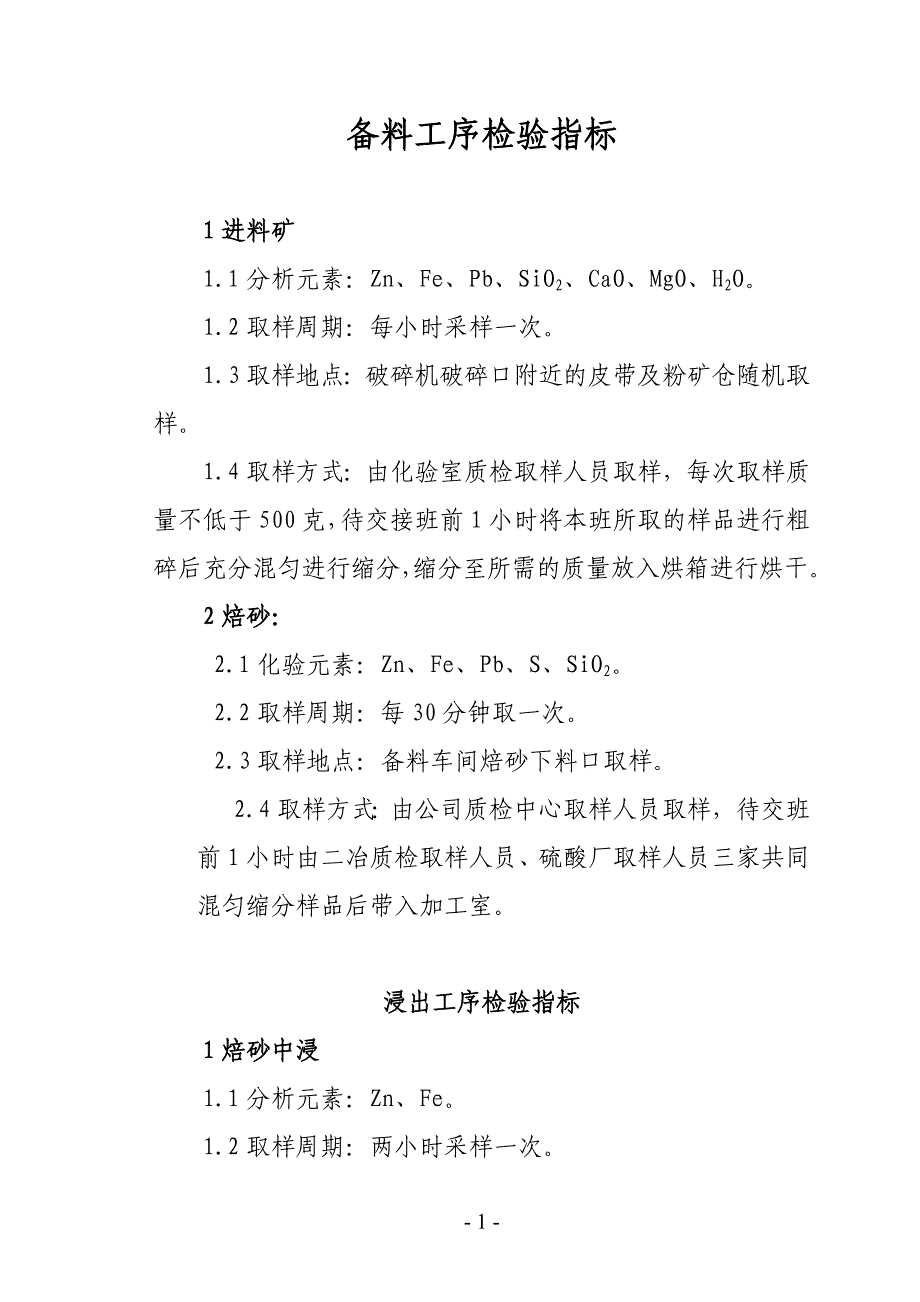 备料工序检验指标
1进料矿
1.1分析元素：Zn、Fe、Pb、SiO₂、CaO、MgO、H₂O。
1.2取样周期：每小时采样一次。
1.3取样地点：破碎机破碎口附近的皮带及粉矿仓随机取
样。
1.4取样方式：由化验室质检取样人员取样，每次取样质
量不低于500克，待交接班前1小时将本班所取的样品进行粗
碎后充分混匀进行缩分，缩分至所需的质量放入烘箱进行烘干。
2焙砂：
2.1化验元素：Zn、Fe、Pb、S、SiO₂。
2.2取样周期：每30分钟取一次。
2.3取样地点：备料车间焙砂下料口取样。
2.4取样方式：由公司质检中心取样人员取样，待交班
前1小时由二冶质检取样人员、硫酸厂取样人员三家共同
混匀缩分样品后带入加工室。
浸出工序检验指标
1焙砂中浸
1.1分析元素：Zn、Fe。
1.2取样周期：两小时采样一次。
- 1 -